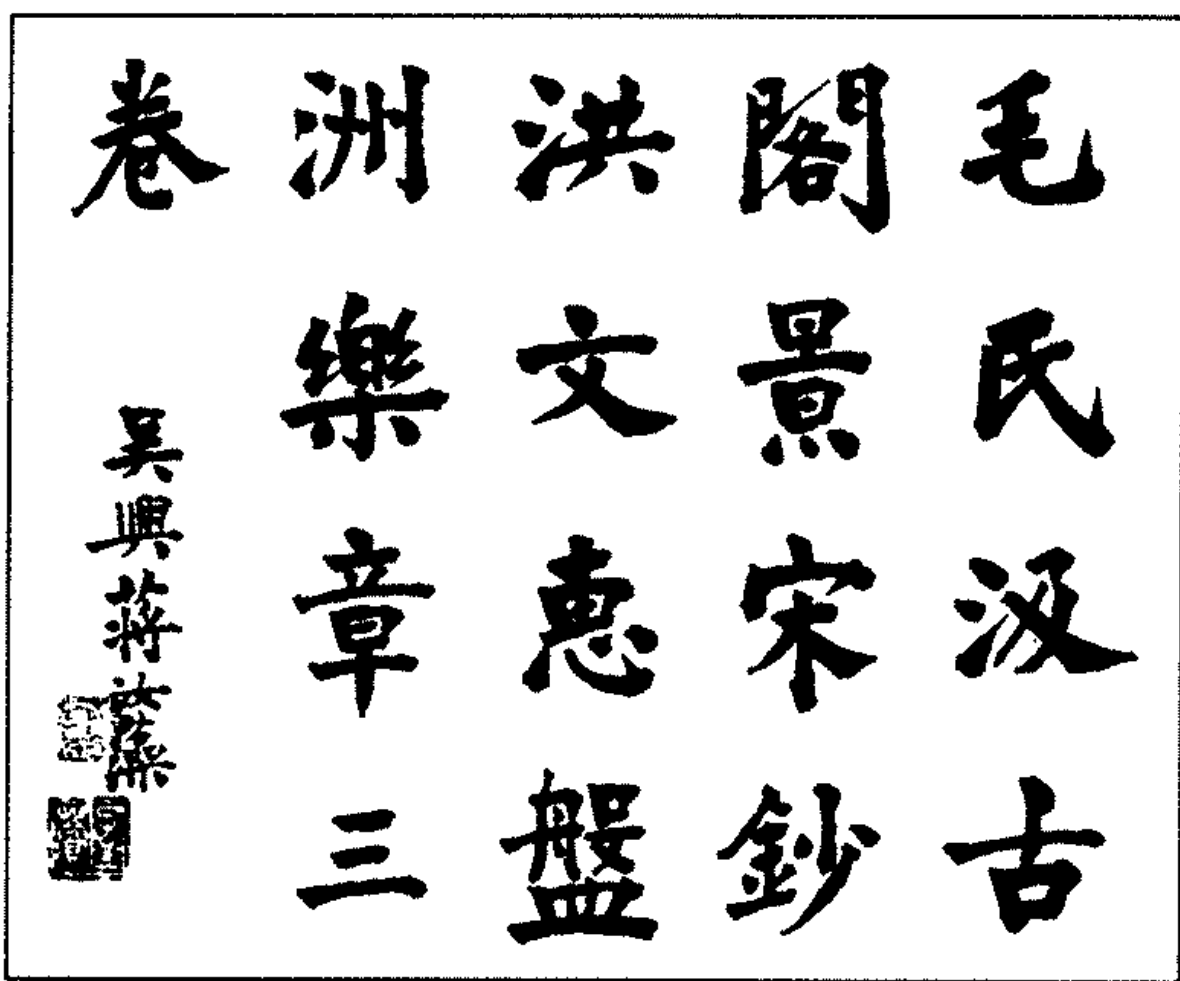 毛氏汲古
閣景宋鈔
洪文惠盤
洲樂章三
卷
吳興蔣汝藻